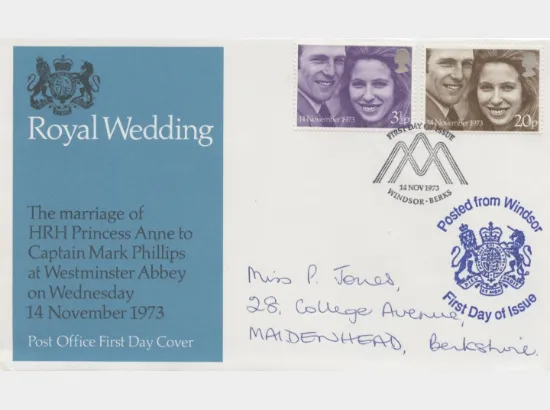 Royal Wedding
The marriage of
HRH Princess Anne to
Captain Mark Phillips
at Westminster Abbey
on Wednesday
14 November 1973
Post Office First Day Cover
14 November 1973 3½p
14 November 1973 20p
FIRST DAY OF ISSUE
14 NOV 1973
WINDSOR - BERKS
Posted from Windsor
First Day of Issue
Miss P. Jones,
28, College Avenue,
MAIDENHEAD, Berkshire.